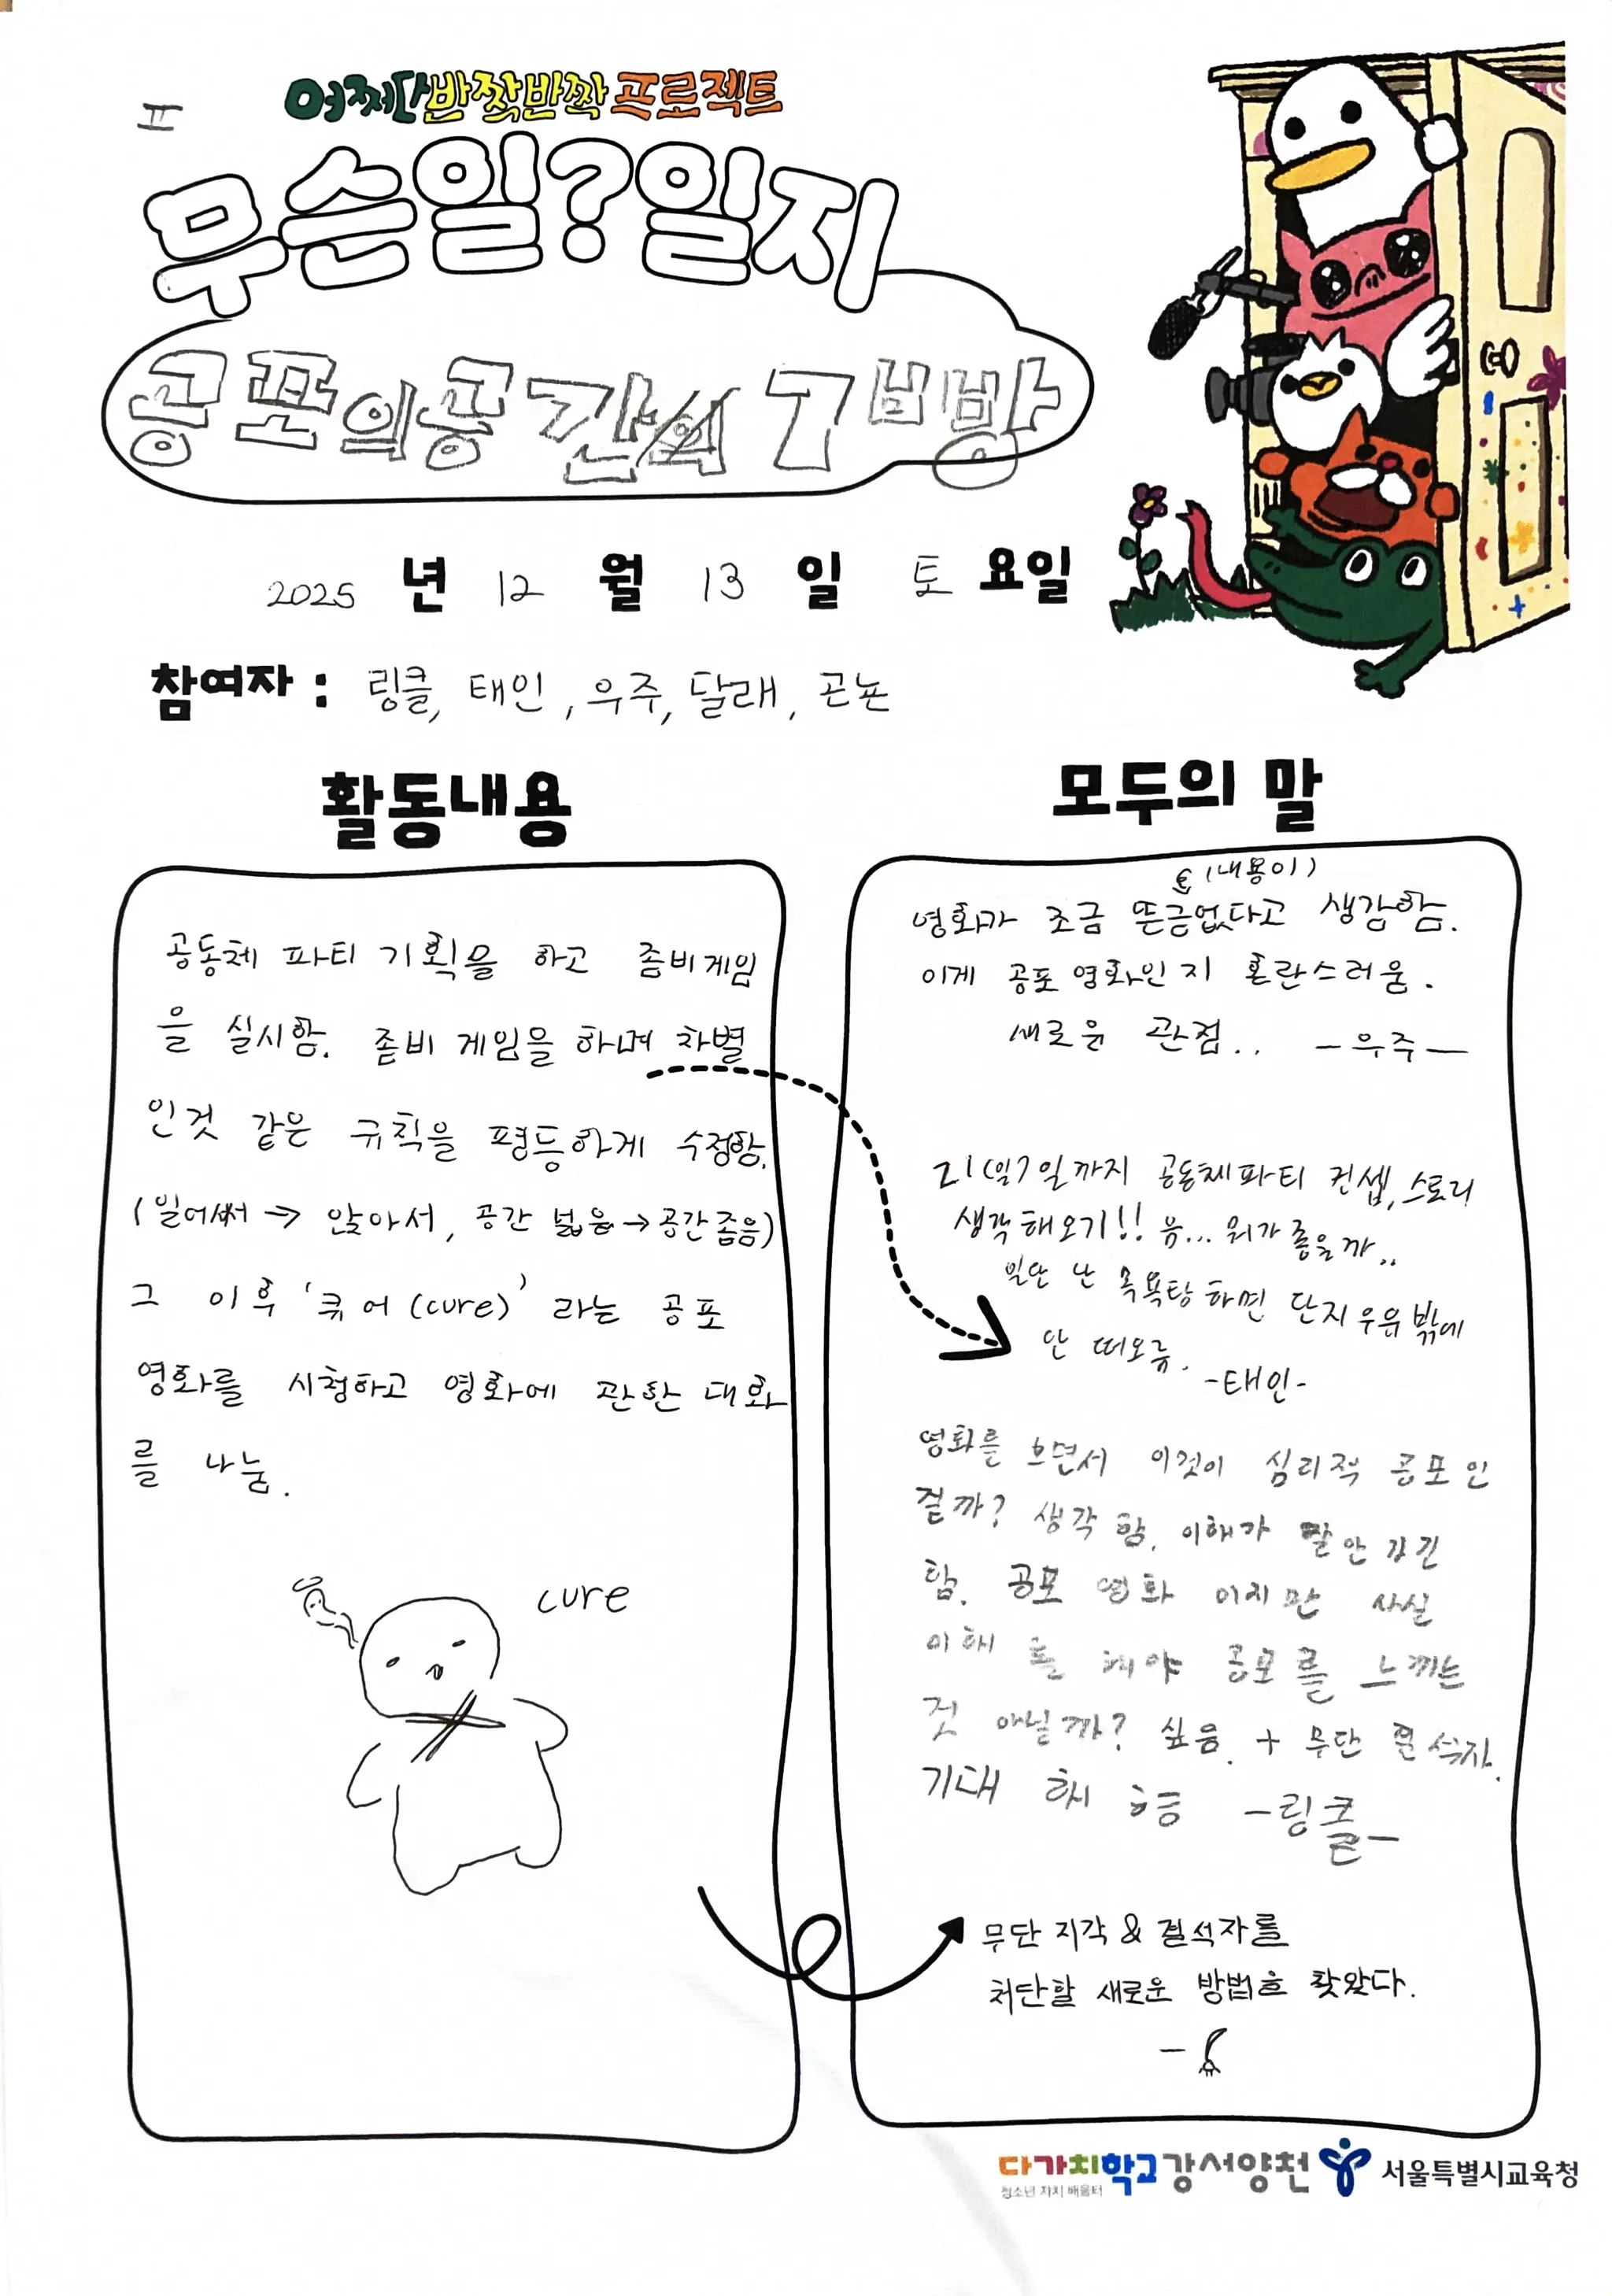 II
어쩌다반짝반짝프로젝트
무슨일?일지
공포의공간의 7번방
2025 년 12 월 13 일 토 요일
참여자 : 링클, 태인, 우주, 달래, 곤뇽
활동내용
공동체 파티 기획을 하고 좀비게임
을 실시함. 좀비 게임을 하며 차별
인것 같은 규칙을 평등하게 수정함.
(일어써 → 앉아서, 공간 넓음→공간좁음)
그 이후 '큐어 (cure)' 라는 공포
영화를 시청하고 영화에 관한 대화
를 나눔.
cure
모두의 말
(내용이)
영화가 조금 뜬금없다고 생각함.
이게 공포 영화인지 혼란스러움.
새로운 관점.. -우주-
21(일)일까지 공동체파티 컨셉, 스토리
생각해오기!! 음... 뭐가 좋을까..
일단 난 목욕탕 하면 단지우유 밖에
안 떠오름.
-태인-
영화를 보면서 이것이 심리적 공포인
걸까? 생각함. 이해가 잘 안 가긴
함. 공포 영화 이지만 사실
이해 를 해야 공포를 느끼는
것 아닐까? 싶음. + 무단 결석자.
기대 해 -링클-
무단 지각 & 결석자를
처단할 새로운 방법을 찾았다.
-
다가치학교강서양천
청소년 자치 배움터
서울특별시교육청